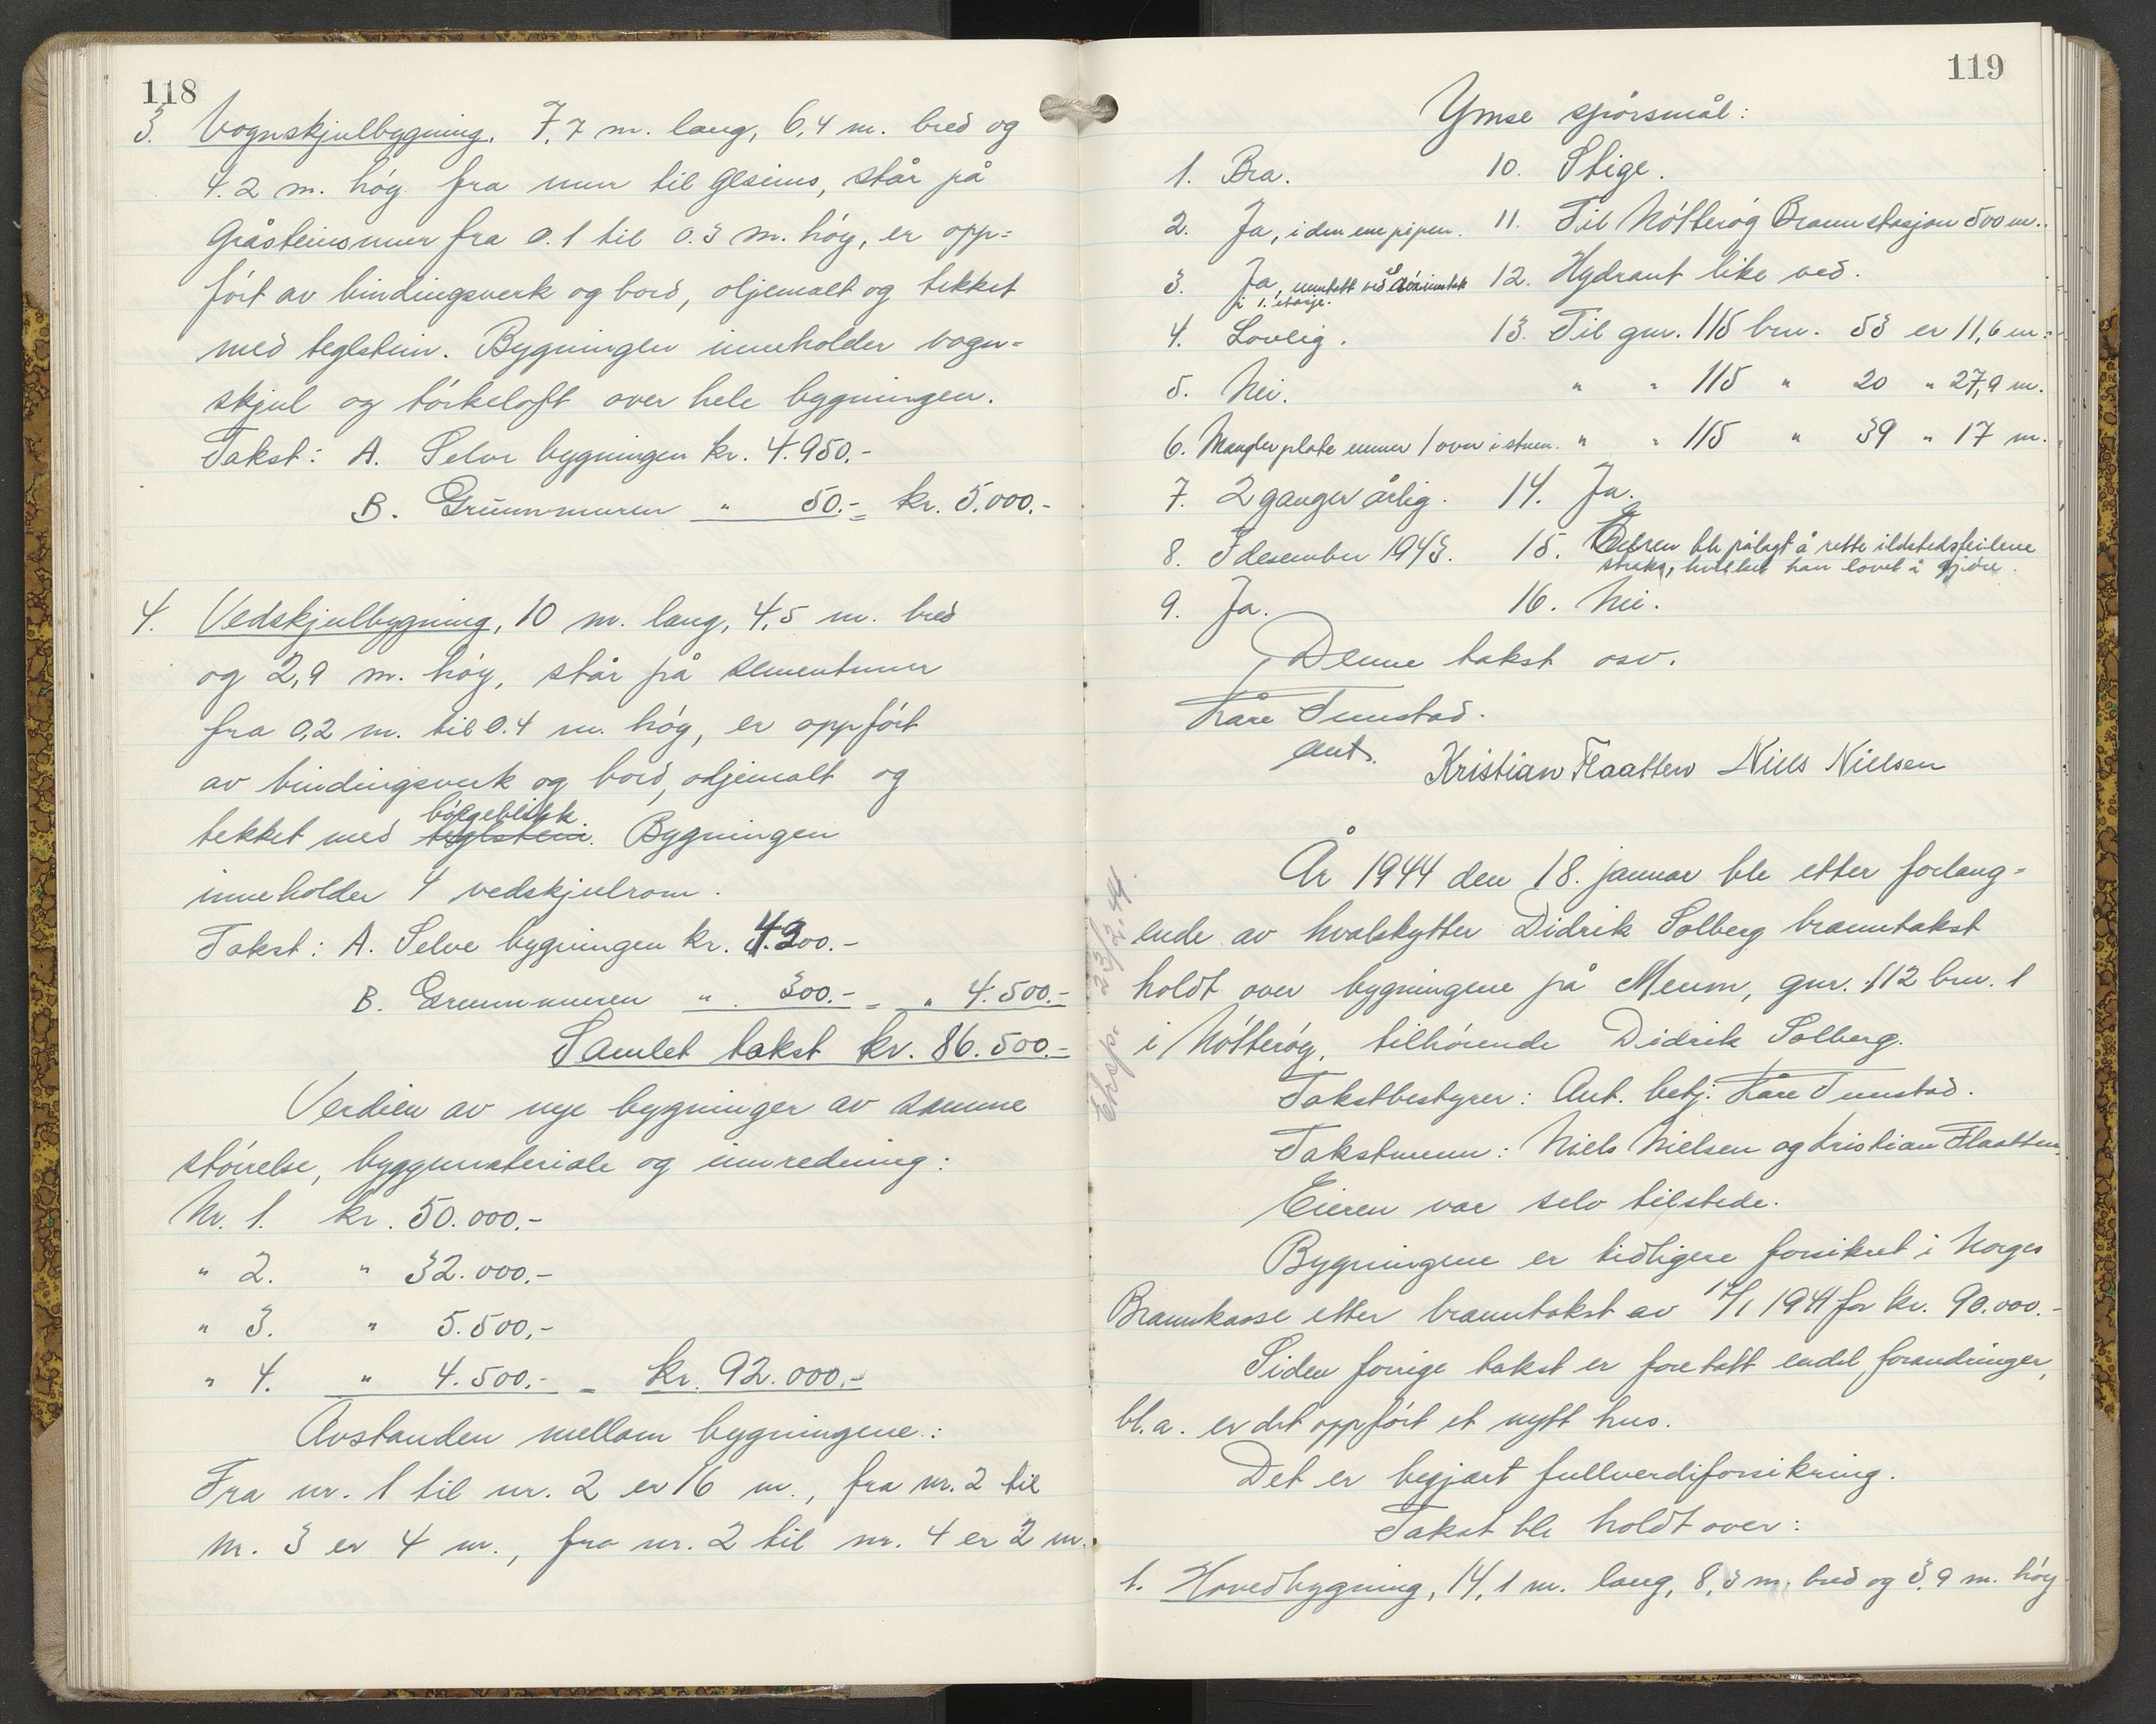 118
3. Vognskjulbygning, 7,7 m. lang, 6,4 m. bred og
4.2 m. höy fra mur til gesims, står på
Gråsteinsmur fra 0.1 til 0.3 m. höy, er opp=
fört av bindingsverk og bord, oljemalt og tekket
med teglstein. Bygningen inneholder vogn=
skjul og törkeloft over hele bygningen.
Takst: A. Selve bygningen kr. 4.950.-
B. Grunnmuren " 50.- = kr. 5.000.-
4. Vedskjulbygning, 10 m. lang, 4,5 m. bred
og 2,9 m. höy, står på sementmur
fra 0,2 m. til 0.4 m. höy, er oppfört
av bindingsverk og bord, oljemalt og
bölgeblikk
tekket med teglstein. Bygningen
inneholder 4 vedskjulrom.
Takst: A. Selve bygningen kr. 4.200.-
B. Grunnmuren " 300.- = " 4.500.-
Samlet takst kr. 86.500.-
Verdien av nye bygninger av samme
störrelse, byggemateriale og innredning:
Nr. 1. kr. 50.000.-
" 2. " 32.000.-
" 3. " 5.500.-
" 4. " 4.500.- = kr. 92.000.-
Avstanden mellom bygningene:
Fra nr. 1 til nr. 2 er 16 m., fra nr. 2 til
nr. 3 er 4 m., fra nr. 2 til nr. 4 er 2 m.
119
Ymse spörsmål:
1. Bra. 10. Stige.
2. Ja, i den ene pipen. 11. Til Nötteröy Brannstasjon 500 m.
3. Ja, unntatt ved 12. Hydrant like ved.
i 1. etasje.
4. Lovlig. 13. Til gnr. 115 bnr. 53 er 11,6 m.
5. Nei. " " 115 " 20 " 27,9 m.
6. Mangler plate under 1 ovn i stuen. " " 115 " 39 " 17 m.
7. 2 ganger årlig. 14. Ja.
8. I desember 1943. 15. Eieren ble pålagt å rette ildstedsfeilene
straks, hvilket han lovet å gjöre.
9. Ja. 16. Nei.
Denne takst osv.
Kåre Tunstad.
ant. Kristian Flaatten Niels Nielsen
År 1944 den 18. januar ble etter forlang=
ende av hvalskytter Didrik Solberg branntakst
holdt over bygningene på Meum, gnr. 112 bnr. 1
i Nötteröy, tilhörende Didrik Solberg.
Eksp. 23/2.44.
Takstbestyrer: Ant. betj. Kåre Tunstad.
Takstmenn: Niels Nielsen og Kristian Flaatten.
Eieren var selv tilstede.
Bygningene er tidligere forsikret i Norges
Brannkasse etter branntakst av 14/1 1941 for kr. 90.000.-
Siden forrige takst er foretatt endel forandringer,
bl.a. er det oppfört et nytt hus.
Det er begjært fullverdiforsikring.
Takst ble holdt over:
1. Hovedbygning, 14,1 m. lang, 8,3 m. bred og 3,9 m. höy